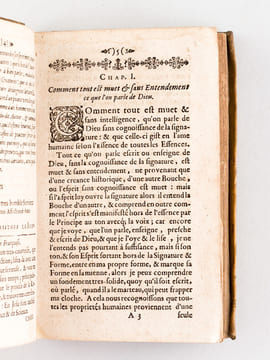 (5)
CHAP. I.
Comment tout est muet & sans Entendement
ce que l'on parle de Dieu.
COmment tout est muet &
sans intelligence, qu'on parle de
Dieu sans cognoissance de la signa-
ture; & que celle-ci gist en l'ame
humaine selon l'Essence de toutes les Essences.
Tout ce qu'on parle escrit ou enseigne de
Dieu, sans la cognoissance de la signature, est
muet & sans entendement, ne provenant que
d'une creance historique, d'une autre Bouche,
ou l'esprit sans cognoissance est muet: mais
si l'esprit luy ouvre la signature alors il entend la
Bouche d'un autre, & comprend en outre com-
ment l'esprit s'est manifesté hors de l'essence par
le Principe au ton avecq; la voix; car encore
que je voye, que l'un parle, enseigne, presche
& escrit de Dieu, & que je l'oye & le lise, je ne
l'entends pas pourtant à suffisance, mais si son
ton, & son Esprit sortant hors de la Signature &
Forme, entre em ma propre forme, & marque sa
Forme en la mienne, alors je peux comprendre
un fondement tres-solide, quoy qu'il soit escrit,
où parlé, quand il a le marteau, qui peut frapper
ma cloche. A cela nous recognoissons que tou-
tes les proprietés humaines proviennent d'une
A 3 seule